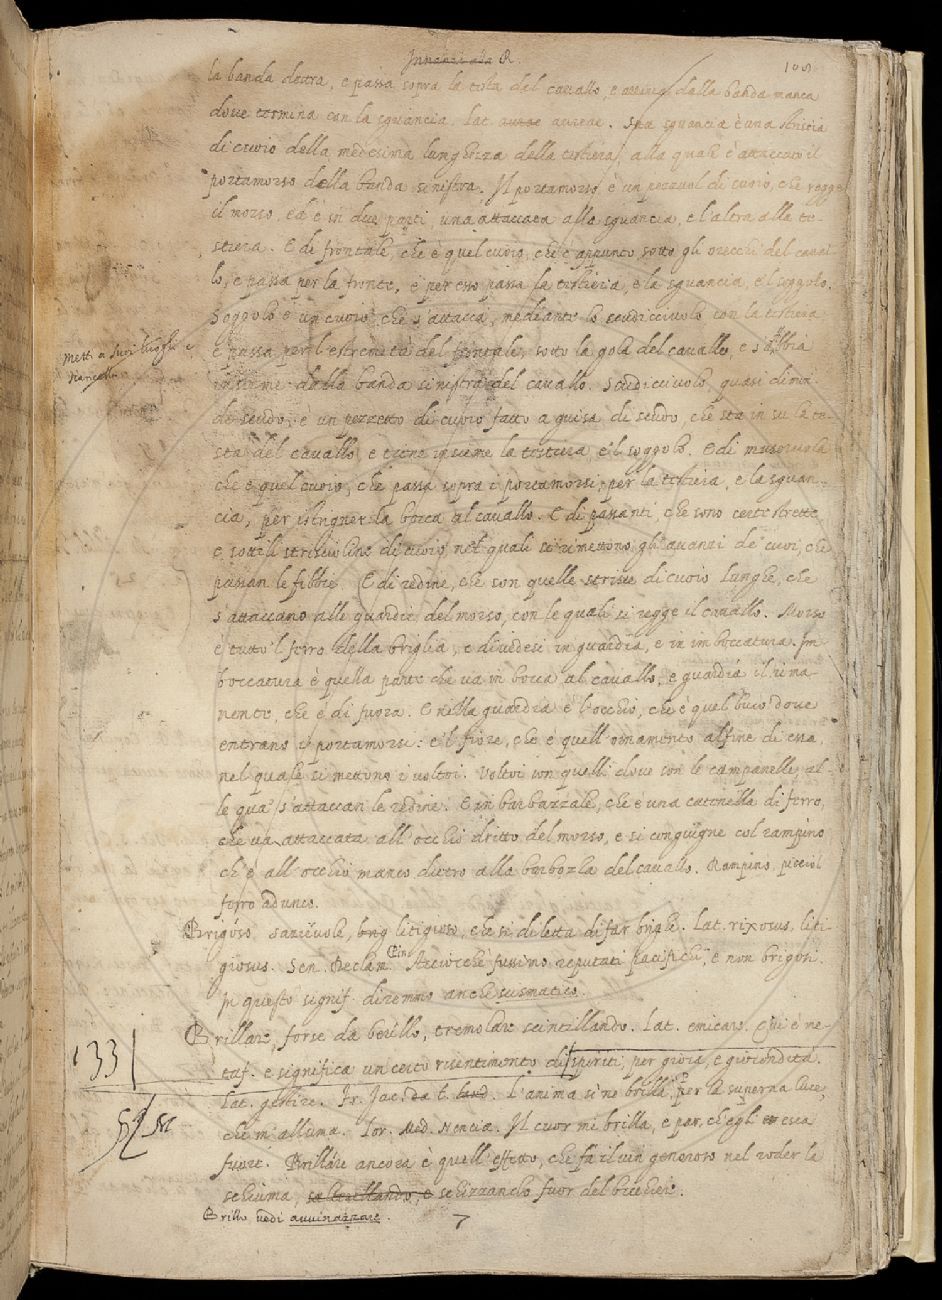 Innanzi alla R.
108
la banda destra, e passa sopra la testa del cavallo, e arriva dalla banda manca
dove termina con la sguancia. Lat. aureae. Sguancia è una striscia
di cuoio della medesima lunghezza della testiera, alla quale è attaccato il
portamorso della banda sinistra. Il portamorso è un pezzuol di cuoio, che regge
il morso, ed è in due parti, una attaccata alla sguancia, e l'altra alla te-
stiera. E di frontale, che è quel cuoio, che è appunto sotto gli orecchi del caval-
lo, e passa per la fronte, e per esso passa la testiera, e la sguancia, e 'l soggolo.
Soggolo è un cuoio che s'attacca, mediante lo scudicciuolo con la testiera
e passa per l'estremità del frontale, sotto la gola del cavallo, e s'affibbia
insieme dalla banda sinistra del cavallo. Scudicciuolo, quasi dimin.
di scudo, è un pezzetto di cuoio fatto a guisa di scudo, che sta in su la te-
sta del cavallo, e tiene insieme la testiera, e 'l soggolo. E di museruola
che è quel cuoio, che passa sopra i portamorsi, per la testiera, e la sguan-
cia, per istrigner la bocca al cavallo. E di passanti, che sono certe strette
e sottili striscioline di cuoio, nel quali si rimettono gli avanzi de' cuoi, che
passan le fibbie. E di redine, che son quelle strisce di cuoio lunghe, che
s'attaccano alle guardie del morso, con le quali si regge il cavallo. Morso
è tutto 'l ferro della briglia, e dividesi in guardia, e in imboccatura. Im-
boccatura è quella parte che va in bocca al cavallo, e guardia il rima-
nente, che è di fuora. E nella guardia è l'occhio, che è quel buco dove
entrano i portamorsi: e 'l fiore, che è quell'ornamento alfine di essa,
nel quale si mettono i voltoi. Voltoi son quelli dove son le campanelle, al-
le qua' s'attaccan le redine. E in barbazzale, che è una catenella di ferro,
che va attaccata all'occhio dritto del morso, e si congiugne col rampino
ch'è all'occhio manco dietro alla barbozza del cavallo. Rampino, picciol
ferro adunco.
Metti a suoi luoghi e
Brigoso, litigioso, che si diletta di far brighe. Lat. rixosus, liti-
giosus. Sen. Declam. Acciocchè fussimo reputati pacifichi, e non brigosi.
In questo signif. diremmo anche susmatico.
Brillare, forse da berillo, tremolare scintillando. Lat. emicare. E qui è me-
taf. e significa un certo risentimento di spiriti, per gioia, e giocondità.
133
Lat. gestire. Fr. Jac. da t. L'anima si ne brilla, per la superna luce,
che m'alluma. Lor. Med. Nencia. Il cuor mi brilla, e par, ch'egli esca
fuore. Brillare ancora è quell'effetto, che fa il vin generoso nel roder la
schiuma, schizzando fuor del bicchiere.
Brillo vedi avvinazzare.